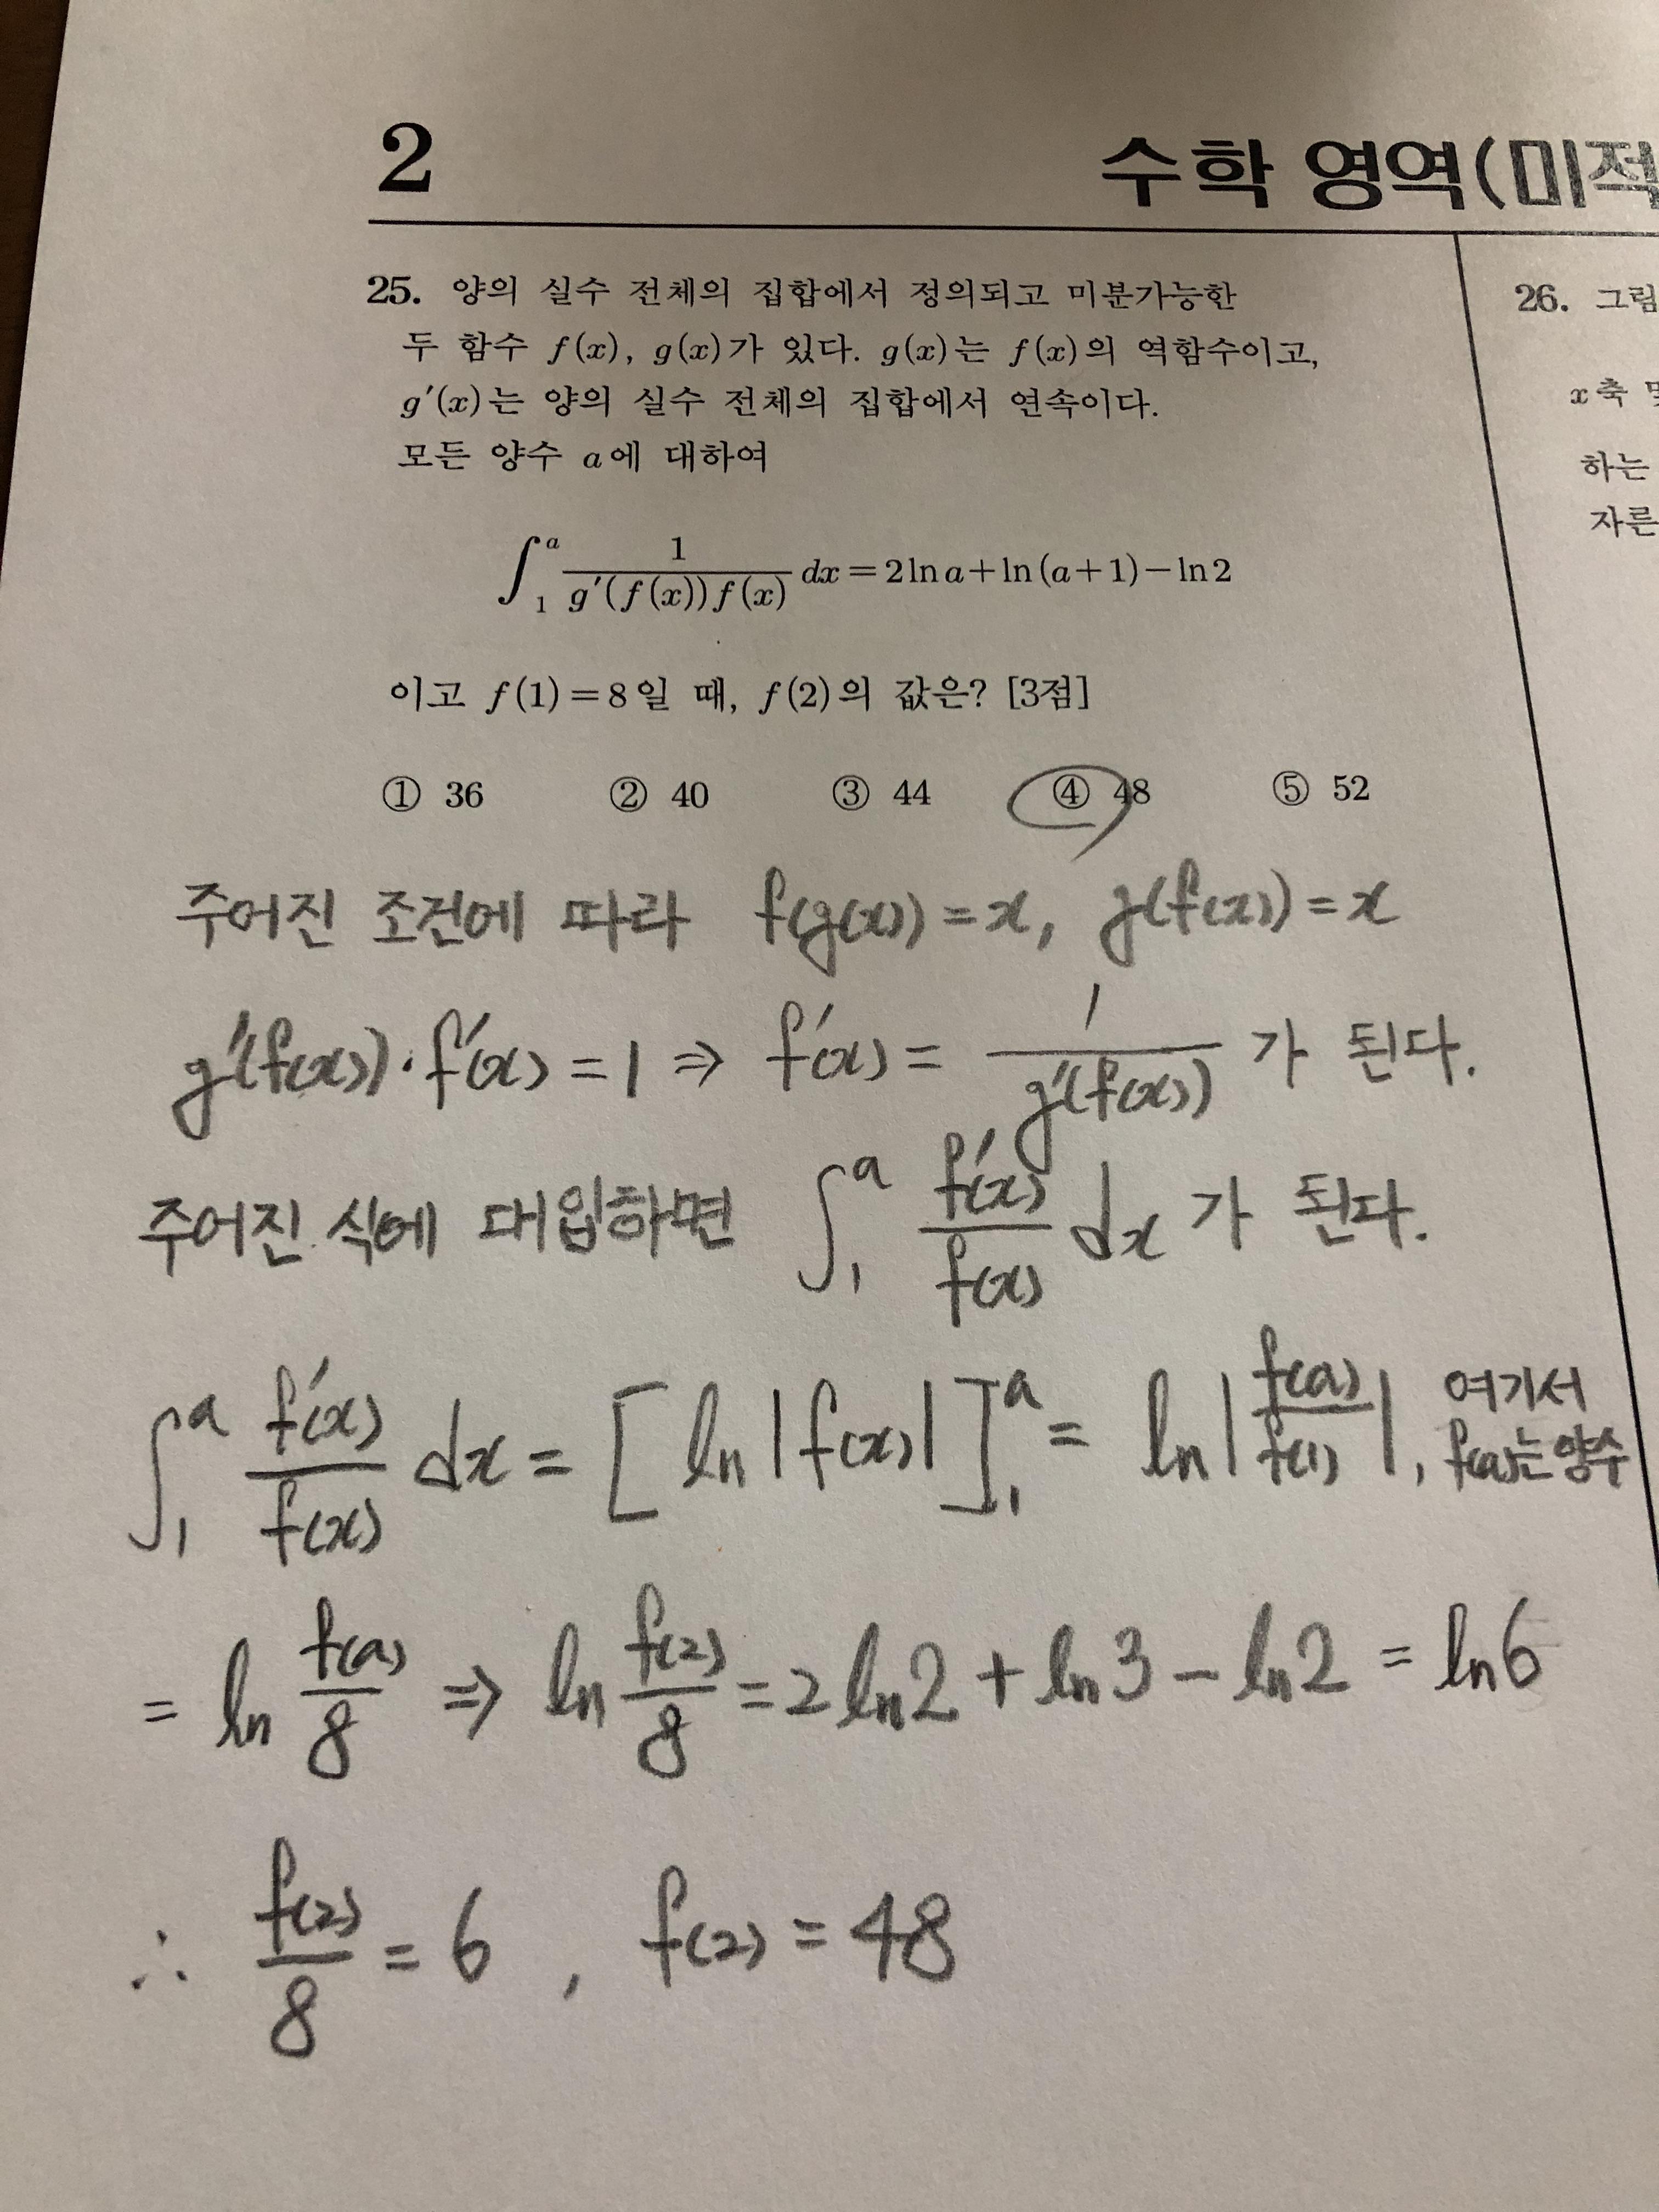 2
수학 영역(미적
25. 양의 실수 전체의 집합에서 정의되고 미분가능한
두 함수 f(x), g(x)가 있다. g(x)는 f(x)의 역함수이고,
g′(x)는 양의 실수 전체의 집합에서 연속이다.
모든 양수 a에 대하여
∫₁ᵃ 1/(g′(f(x))f(x)) dx = 2ln a + ln(a+1) − ln2
이고 f(1)=8일 때, f(2)의 값은? [3점]
① 36 ② 40 ③ 44 ④ 48 ⑤ 52
26. 그림
x축 및
하는
자른
주어진 조건에 따라 f(g(x)) = x, g(f(x)) = x
g′(f(x))·f′(x) = 1 ⇒ f′(x) = 1/g′(f(x)) 가 된다.
주어진 식에 대입하면 ∫₁ᵃ f′(x)/f(x) dx 가 된다.
∫₁ᵃ f′(x)/f(x) dx = [ln|f(x)|]₁ᵃ = ln|f(a)/f(1)|, 여기서 f(a)는 양수
= ln f(a)/8 ⇒ ln f(2)/8 = 2ln2 + ln3 − ln2 = ln6
∴ f(2)/8 = 6, f(2) = 48